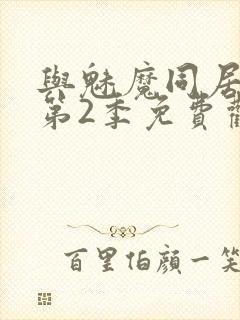 與魅魔同居
第2季免費
百里伯顏一笑